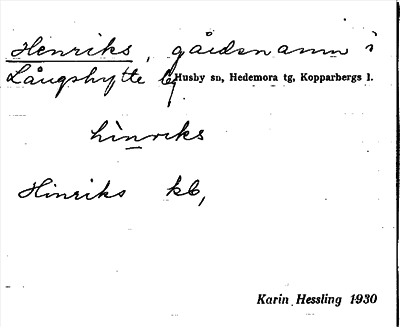 Henriks, gårdsnamn i
Långshytte by Husby sn, Hedemora tg, Kopparbergs l.
hìnrıks
Hinriks kb,
Karin Hessling 1930